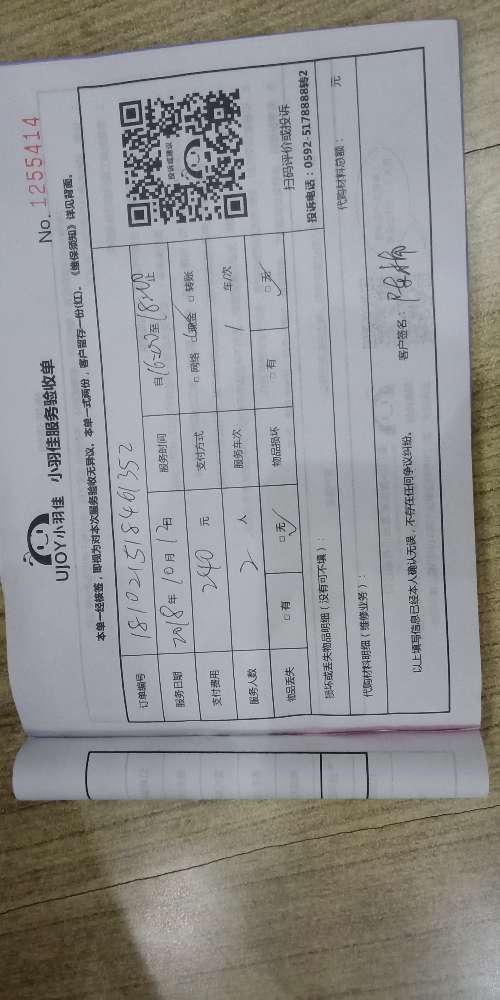 No. 1255414
UJOY小羽佳 小羽佳服务验收单
本单一经核签，即视为对本次服务验收无异议，本单一式两份，客户留存一份(红)。《维保须知》详见背面。
订单编号 181021518461352
服务日期 2018年10月12日 服务时间 自16:00至18:00止
支付费用 240 元 支付方式 □网络 □现金 □转账
服务人数 2 人 服务车次 1 车/次
物品丢失 □有 □无 物品损坏 □有 □无
投诉或建议
扫码评价或投诉
投诉电话：0592-5178888转2
损坏或丢失物品明细（没有可不填）：
代购材料明细（维修业务）： 代购材料总额： 元
以上填写信息已经本人确认无误，不存在任何争议纠纷。 客户签名：